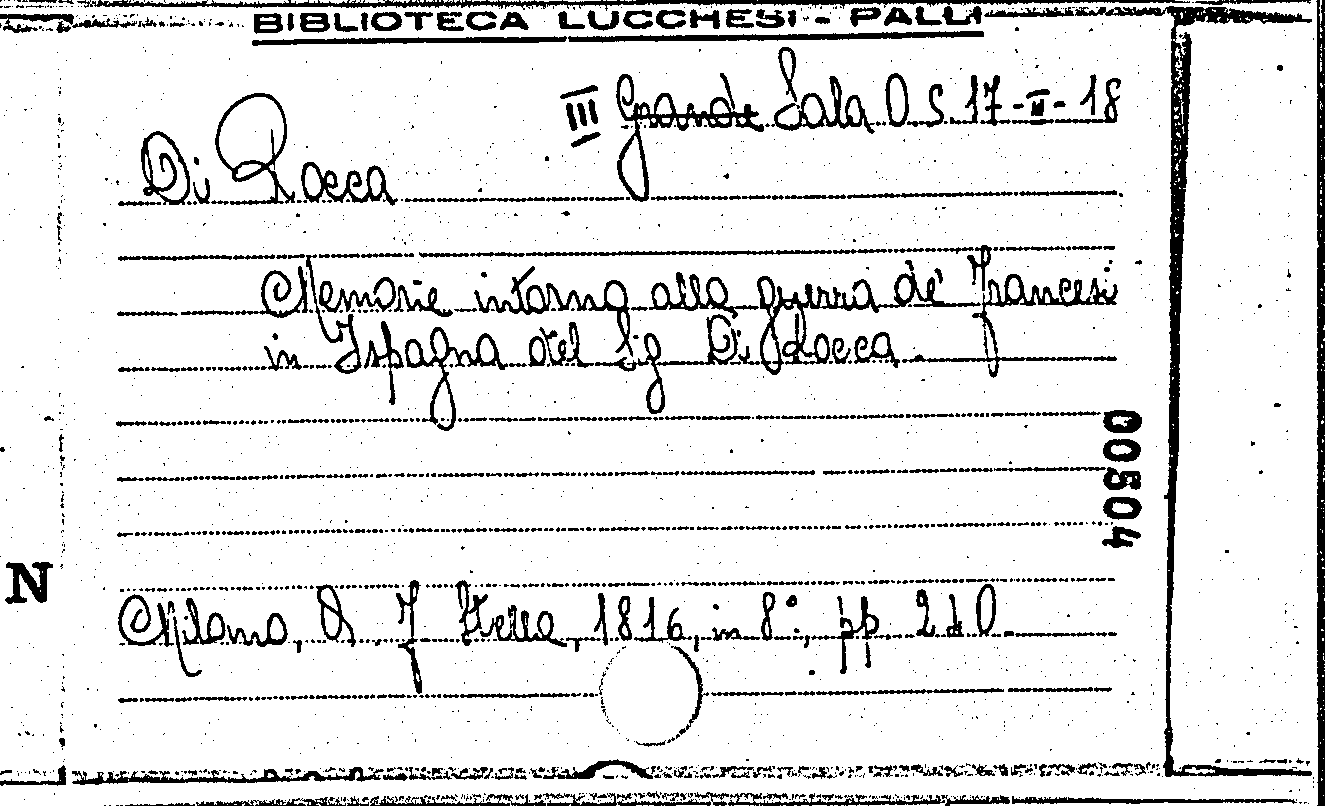 BIBLIOTECA LUCCHESI - PALLI
III Grande Sala O S. 17-II-18
Di Rocca
Memorie intorno alla guerra de' Francesi
in Ispagna del Sig Di Rocca.
00504
N
Milano, A. F. Stella, 1816, in 8°, pp.